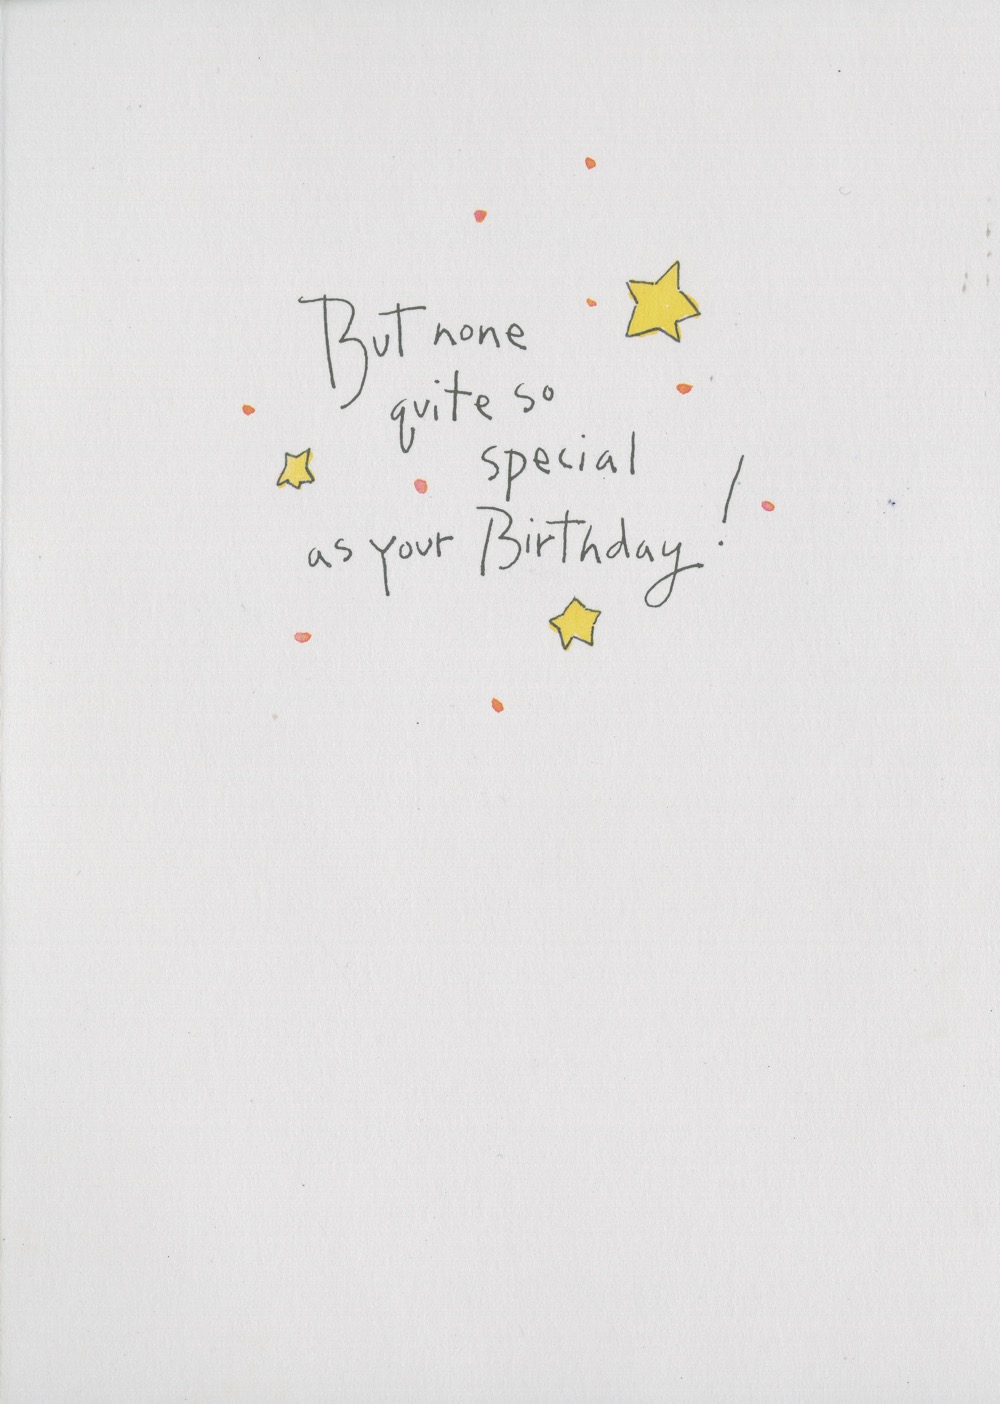 But none
quite so
special
as your Birthday!